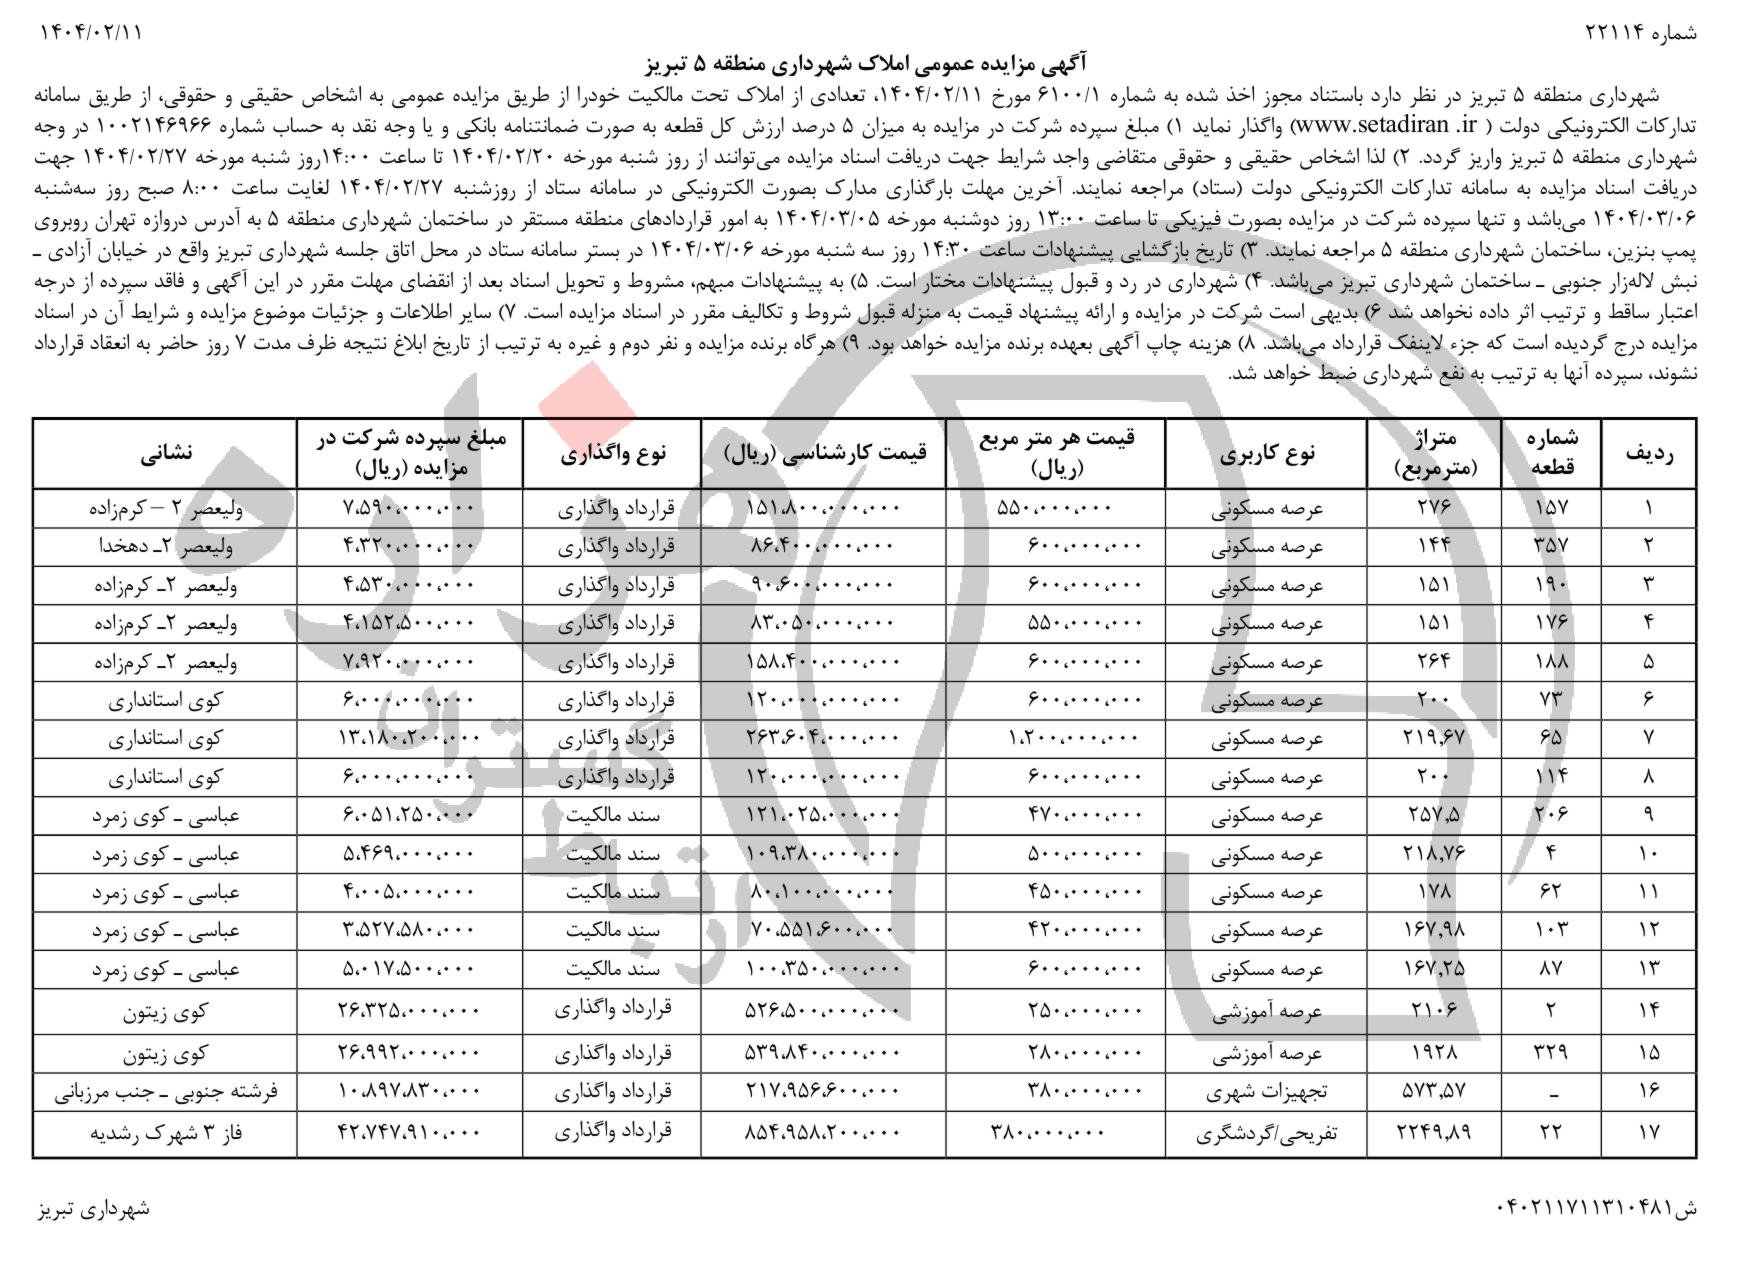 شماره ۲۲۱۱۴
۱۴۰۴/۰۲/۱۱
آگهی مزایده عمومی املاک شهرداری منطقه ۵ تبریز
شهرداری منطقه ۵ تبریز در نظر دارد باستناد مجوز اخذ شده به شماره ۶۱۰۰/۱ مورخ ۱۴۰۴/۰۲/۱۱، تعدادی از املاک تحت مالکیت خودرا از طریق مزایده عمومی به اشخاص حقیقی و حقوقی، از طریق سامانه
تدارکات الکترونیکی دولت ( www.setadiran .ir) واگذار نماید ۱) مبلغ سپرده شرکت در مزایده به میزان ۵ درصد ارزش کل قطعه به صورت ضمانتنامه بانکی و یا وجه نقد به حساب شماره ۱۰۰۲۱۴۶۹۶۶ در وجه
شهرداری منطقه ۵ تبریز واریز گردد. ۲) لذا اشخاص حقیقی و حقوقی متقاضی واجد شرایط جهت دریافت اسناد مزایده می‌توانند از روز شنبه مورخه ۱۴۰۴/۰۲/۲۰ تا ساعت ۱۴:۰۰روز شنبه مورخه ۱۴۰۴/۰۲/۲۷ جهت
دریافت اسناد مزایده به سامانه تدارکات الکترونیکی دولت (ستاد) مراجعه نمایند. آخرین مهلت بارگذاری مدارک بصورت الکترونیکی در سامانه ستاد از روزشنبه ۱۴۰۴/۰۲/۲۷ لغایت ساعت ۸:۰۰ صبح روز سه‌شنبه
۱۴۰۴/۰۳/۰۶ می‌باشد و تنها سپرده شرکت در مزایده بصورت فیزیکی تا ساعت ۱۳:۰۰ روز دوشنبه مورخه ۱۴۰۴/۰۳/۰۵ به امور قراردادهای منطقه مستقر در ساختمان شهرداری منطقه ۵ به آدرس دروازه تهران روبروی
پمپ بنزین، ساختمان شهرداری منطقه ۵ مراجعه نمایند. ۳) تاریخ بازگشایی پیشنهادات ساعت ۱۴:۳۰ روز سه شنبه مورخه ۱۴۰۴/۰۳/۰۶ در بستر سامانه ستاد در محل اتاق جلسه شهرداری تبریز واقع در خیابان آزادی ـ
نبش لاله‌زار جنوبی ـ ساختمان شهرداری تبریز می‌باشد. ۴) شهرداری در رد و قبول پیشنهادات مختار است. ۵) به پیشنهادات مبهم، مشروط و تحویل اسناد بعد از انقضای مهلت مقرر در این آگهی و فاقد سپرده از درجه
اعتبار ساقط و ترتیب اثر داده نخواهد شد ۶) بدیهی است شرکت در مزایده و ارائه پیشنهاد قیمت به منزله قبول شروط و تکالیف مقرر در اسناد مزایده است. ۷) سایر اطلاعات و جزئیات موضوع مزایده و شرایط آن در اسناد
مزایده درج گردیده است که جزء لاینفک قرارداد می‌باشد. ۸) هزینه چاپ آگهی بعهده برنده مزایده خواهد بود. ۹) هرگاه برنده مزایده و نفر دوم و غیره به ترتیب از تاریخ ابلاغ نتیجه ظرف مدت ۷ روز حاضر به انعقاد قرارداد
نشوند، سپرده آنها به ترتیب به نفع شهرداری ضبط خواهد شد.
ردیف | شماره قطعه | متراژ (مترمربع) | نوع کاربری | قیمت هر متر مربع (ریال) | قیمت کارشناسی (ریال) | نوع واگذاری | مبلغ سپرده شرکت در مزایده (ریال) | نشانی
۱ | ۱۵۷ | ۲۷۶ | عرصه مسکونی | ۵۵۰،۰۰۰،۰۰۰ | ۱۵۱،۸۰۰،۰۰۰،۰۰۰ | قرارداد واگذاری | ۷،۵۹۰،۰۰۰،۰۰۰ | ولیعصر ۲ – کرم‌زاده
۲ | ۳۵۷ | ۱۴۴ | عرصه مسکونی | ۶۰۰،۰۰۰،۰۰۰ | ۸۶،۴۰۰،۰۰۰،۰۰۰ | قرارداد واگذاری | ۴،۳۲۰،۰۰۰،۰۰۰ | ولیعصر ۲ـ دهخدا
۳ | ۱۹۰ | ۱۵۱ | عرصه مسکونی | ۶۰۰،۰۰۰،۰۰۰ | ۹۰،۶۰۰،۰۰۰،۰۰۰ | قرارداد واگذاری | ۴،۵۳۰،۰۰۰،۰۰۰ | ولیعصر ۲ـ کرم‌زاده
۴ | ۱۷۶ | ۱۵۱ | عرصه مسکونی | ۵۵۰،۰۰۰،۰۰۰ | ۸۳،۰۵۰،۰۰۰،۰۰۰ | قرارداد واگذاری | ۴،۱۵۲،۵۰۰،۰۰۰ | ولیعصر ۲ـ کرم‌زاده
۵ | ۱۸۸ | ۲۶۴ | عرصه مسکونی | ۶۰۰،۰۰۰،۰۰۰ | ۱۵۸،۴۰۰،۰۰۰،۰۰۰ | قرارداد واگذاری | ۷،۹۲۰،۰۰۰،۰۰۰ | ولیعصر ۲ـ کرم‌زاده
۶ | ۷۳ | ۲۰۰ | عرصه مسکونی | ۶۰۰،۰۰۰،۰۰۰ | ۱۲۰،۰۰۰،۰۰۰،۰۰۰ | قرارداد واگذاری | ۶،۰۰۰،۰۰۰،۰۰۰ | کوی استانداری
۷ | ۶۵ | ۲۱۹,۶۷ | عرصه مسکونی | ۱،۲۰۰،۰۰۰،۰۰۰ | ۲۶۳،۶۰۴،۰۰۰،۰۰۰ | قرارداد واگذاری | ۱۳،۱۸۰،۲۰۰،۰۰۰ | کوی استانداری
۸ | ۱۱۴ | ۲۰۰ | عرصه مسکونی | ۶۰۰،۰۰۰،۰۰۰ | ۱۲۰،۰۰۰،۰۰۰،۰۰۰ | قرارداد واگذاری | ۶،۰۰۰،۰۰۰،۰۰۰ | کوی استانداری
۹ | ۲۰۶ | ۲۵۷,۵ | عرصه مسکونی | ۴۷۰،۰۰۰،۰۰۰ | ۱۲۱،۰۲۵،۰۰۰،۰۰۰ | سند مالکیت | ۶،۰۵۱،۲۵۰،۰۰۰ | عباسی ـ کوی زمرد
۱۰ | ۴ | ۲۱۸,۷۶ | عرصه مسکونی | ۵۰۰،۰۰۰،۰۰۰ | ۱۰۹،۳۸۰،۰۰۰،۰۰۰ | سند مالکیت | ۵،۴۶۹،۰۰۰،۰۰۰ | عباسی ـ کوی زمرد
۱۱ | ۶۲ | ۱۷۸ | عرصه مسکونی | ۴۵۰،۰۰۰،۰۰۰ | ۸۰،۱۰۰،۰۰۰،۰۰۰ | سند مالکیت | ۴،۰۰۵،۰۰۰،۰۰۰ | عباسی ـ کوی زمرد
۱۲ | ۱۰۳ | ۱۶۷,۹۸ | عرصه مسکونی | ۴۲۰،۰۰۰،۰۰۰ | ۷۰،۵۵۱،۶۰۰،۰۰۰ | سند مالکیت | ۳،۵۲۷،۵۸۰،۰۰۰ | عباسی ـ کوی زمرد
۱۳ | ۸۷ | ۱۶۷,۲۵ | عرصه مسکونی | ۶۰۰،۰۰۰،۰۰۰ | ۱۰۰،۳۵۰،۰۰۰،۰۰۰ | سند مالکیت | ۵،۰۱۷،۵۰۰،۰۰۰ | عباسی ـ کوی زمرد
۱۴ | ۲ | ۲۱۰۶ | عرصه آموزشی | ۲۵۰،۰۰۰،۰۰۰ | ۵۲۶،۵۰۰،۰۰۰،۰۰۰ | قرارداد واگذاری | ۲۶،۳۲۵،۰۰۰،۰۰۰ | کوی زیتون
۱۵ | ۳۲۹ | ۱۹۲۸ | عرصه آموزشی | ۲۸۰،۰۰۰،۰۰۰ | ۵۳۹،۸۴۰،۰۰۰،۰۰۰ | قرارداد واگذاری | ۲۶،۹۹۲،۰۰۰،۰۰۰ | کوی زیتون
۱۶ | ـ | ۵۷۳,۵۷ | تجهیزات شهری | ۳۸۰،۰۰۰،۰۰۰ | ۲۱۷،۹۵۶،۶۰۰،۰۰۰ | قرارداد واگذاری | ۱۰،۸۹۷،۸۳۰،۰۰۰ | فرشته جنوبی ـ جنب مرزبانی
۱۷ | ۲۲ | ۲۲۴۹,۸۹ | تفریحی/گردشگری | ۳۸۰،۰۰۰،۰۰۰ | ۸۵۴،۹۵۸،۲۰۰،۰۰۰ | قرارداد واگذاری | ۴۲،۷۴۷،۹۱۰،۰۰۰ | فاز ۳ شهرک رشدیه
هزاره
گستران
ارتباط
ش۰۴۰۲۱۱۷۱۱۳۱۰۴۸۱
شهرداری تبریز